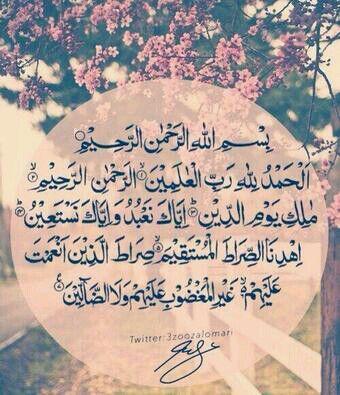 بِسْمِ اللهِ الرَّحْمٰنِ الرَّحِيْمِ ۝
اَلْحَمْدُ لِلّٰهِ رَبِّ الْعٰلَمِيْنَ ۝١ الرَّحْمٰنِ الرَّحِيْمِ ۝٢
مٰلِكِ يَوْمِ الدِّيْنِ ۝٣ اِيَّاكَ نَعْبُدُ وَاِيَّاكَ نَسْتَعِيْنُ ۝٤
اِهْدِنَا الصِّرَاطَ الْمُسْتَقِيْمَ ۝٥ صِرَاطَ الَّذِيْنَ اَنْعَمْتَ
عَلَيْهِمْ ۝٦ غَيْرِ الْمَغْضُوْبِ عَلَيْهِمْ وَلَا الضَّآلِّيْنَ ۝٧
Twitter:3zoozalomari